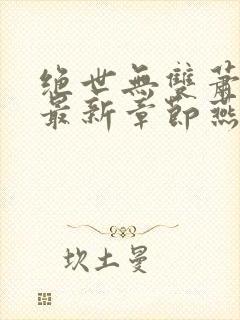 绝世無雙蕭
最新章節燕
坎土曼